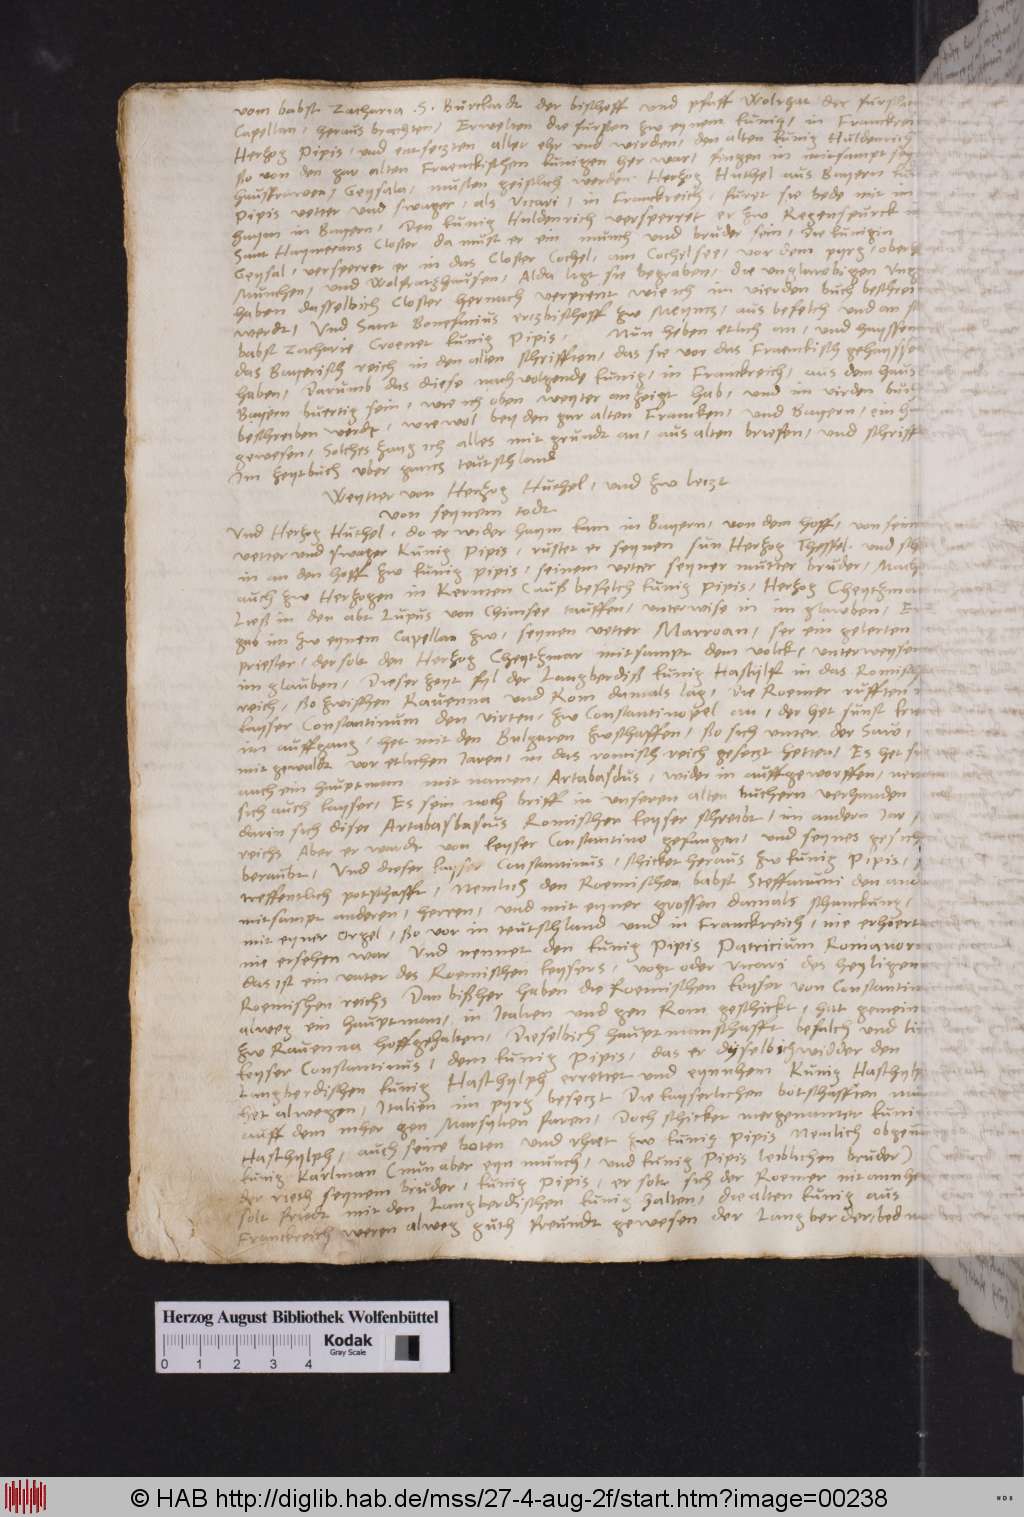 vom babst Zacharia .S. Burckardt der bisthoff vnd pfaff Wolrgat der fursten
Capellan / heraus brachten / Erwelten die fursten zw eynem kunig / in Franckrei
Hertzog Pipis / vnd entsetzten aller ehr vnd wirden / den alten kunig Huldenrich
so von den gar alten Franckischen kunigen her war / fingen in mitsampt sey
haussfrawen / Geysala / musten geistlich werden. Hertzog Huthel aus Bayern
Pipis vetter vnd swager / als Vicari / in Franckreich / furet sie bede mit im
haym in Bayern / Den kunig Huldenrich versperret er zw Regenspurck
Sant Haymerans Closter da must er ein munch vnd bruder sein / die kunigin
Geysal / versperret er in das Closter Cochel / am Cochilsee / vor dem pyrg / ober
Munchen / vnd Wolfratzhausen / Alda ligt sie begraben / die vnglawbigen Vng
haben dasselbich Closter hernach verprent wie ich im vierden buch beschrei
werdt / Vnd Sant Bonefacius ertzbisthoff zw Meyntz / aus befelch vnd an st
babst Zacharie Croenet kunig Pipis / Nun heben etlich an / vnd hayssen
das Bayerisch reich in den alten schrifften / das sie vor das Franckisch gehayssen
haben / Darumb das diese nachvolgende kunig / in Franckreich / aus dem haus
Bayern buertig sein / wie ich oben weyter anzeigt hab / vnd im virden buch
beschreiben werde / wie wol bey den gar alten Francken / vnd Bayern / ein
gewesen / Solches zayg ich alles mit grundt an / aus alten brieffen / vnd schriff
Im zeytbuch vber gantz teutschland
Weytter von Hertzog Huthel / vnd zw letzt
von seynem todt
Vnd Hertzog Huthel / do er wider haym kam in Bayern / von dem hoff / von sein
vetter vnd swager kunig Pipis / rustet er seynen sun Hertzog Thessel / vnd sch
in an den hoff zw kunig pipis / seinem vetter seyner mutter bruder / Mach
auch zw Hertzogen in Kernten Causs befelch kunig Pipis / Hertzog Cheythmar
Liess in den abt Lupus von Chimsee tauffen / vnterwise in im glawben / Er
gab im zw eynem Capellan zw / seynen vetter Marroan / ser ein gelerten
priester / der solt den Hertzog Cheythmar mitsampt dem volck / vnterweysen
im glauben / Dieser zeyt fyl der Langberdiss kunig Hastulff in das Romisch
reich / so zwischen Rauenna vnd Rom damals lag / Die Roemer rufften
kayser Constantinum den virten / zw Constantinopel an / der het sunst krie
im auffgang / het mit den Bulgaren zwsthaffen / so sich vnter der Saw /
mit gewaldt vor etlichen Jaren / in das romisch reich gesetzt hetten / Es het
auch ein hauptman mit namen / Artabasdus / wider in auffgeworffen / nen
sich auch kayser / Es sein noch brieff in vnseren alten buchern verhanden
darin sich dieser Artabasbasus Romischer keyser schreibt / im andern Jar
reichs Aber er wardt von keyser Constantino gefangen / vnd seynes gesich
beraubt / Vnd dieser kayser Constantinus / schicket heraus zw kunig Pipis /
treffentlich potschafft / Nemlich den Roemischen babst Steffanum den and
mitsampt anderen / herren / vnd mit eyner grossen damals schanckung /
mit eyner Orgel / so vor in teutschland vnd in Franckreich / nie erhoert
nie ersehen war Vnd nennet den kunig Pipis Patricium Romanor
das ist ein vater des Roemischen keysers / vogt oder vicari des heyligen
Roemischen reichs Dan bissher haben die Roemischen keyser von Constantin
alweg ein hauptman / in Italien vnd gen Rom geschickt / hat gemein
zw Rauenna hoff gehalten / Dieselbich hauptmanschafft befalch vnd li
keyser Constantinus / dem kunig Pipis / das er dyselbich widder den
Langberdischen kunig Hasthylph errettet vnd eynnhem Kunig Hasthylp
het alwegen / Italien im pyrg besetzt Die kayserlichen botschafften
auff dem mher gen Marsylien faren / Doch schicket mergenanter kuni
Hasthylph / auch seine boten vnd rhaet zw kunig Pipis Nemlich obgenn
kunig Karlman (nun aber eyn munch / vnd kunig Pipis leiblichen bruder)
der rieth seynem bruder / kunig Pipis / er solt sich der Roemer nit annhe
solt friedt mit den Langberdischen kunig halten / die alten kunig aus
Franckreich weren alweg guth freundt gewesen der Langberder
Herzog August Bibliothek Wolfenbüttel
Kodak
Gray Scale
0 1 2 3 4
© HAB http://diglib.hab.de/mss/27-4-aug-2f/start.htm?image=00238